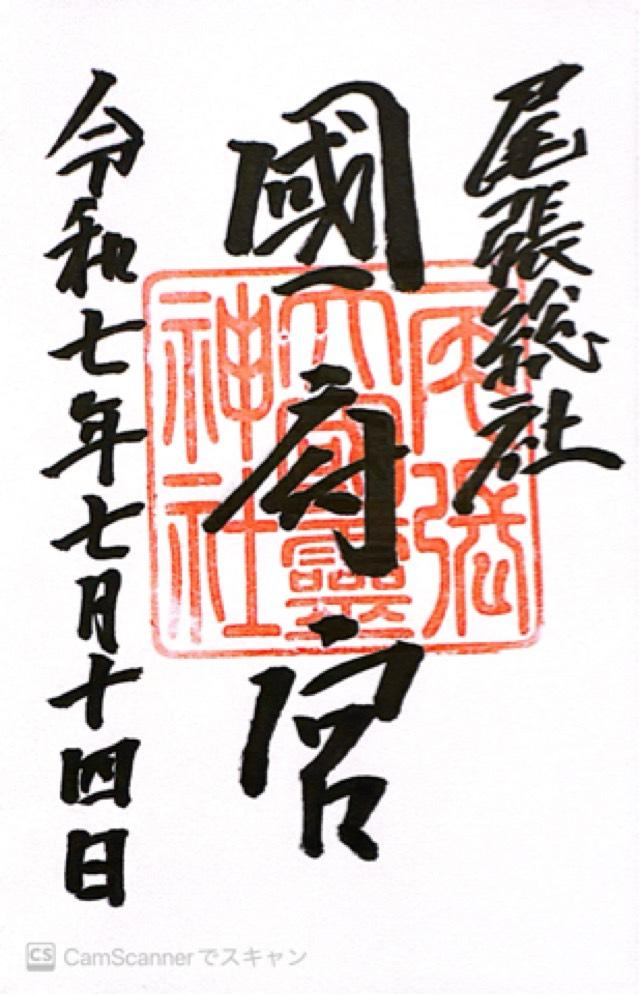 尾張総社
國府宮
令和七年七月十四日
尾張
大國靈
神社
CS CamScannerでスキャン